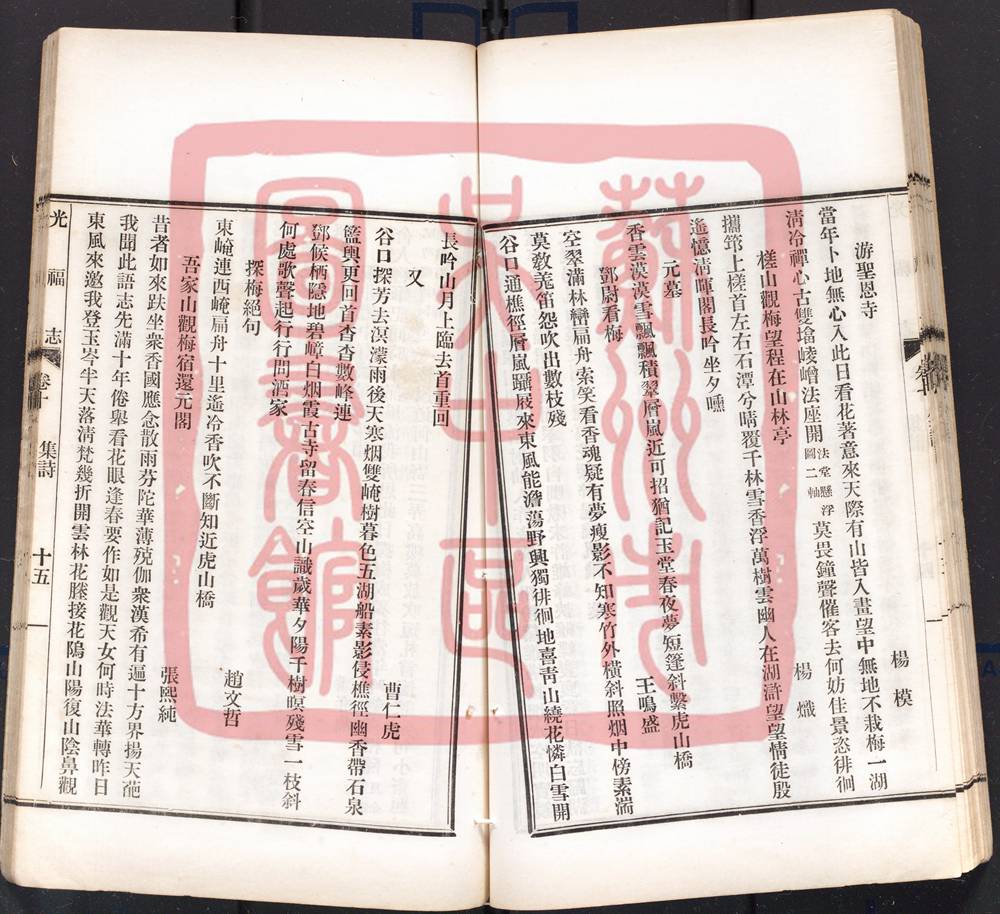 游聖恩寺
楊模
當年卜地無心入此日看花著意來天際有山皆入畫望中無地不栽梅一湖
清冷禪心古雙墖崚嶒法座開法堂懸浮圖二軸莫畏鐘聲催客去何妨佳景恣徘徊
槎山觀梅望程在山林亭
楊熾
攜筇上槎首左右石潭兮晴覆千林雪香浮萬樹雲幽人在湖滸望望情徒殷
遙憶清暉閣長吟坐夕曛
元墓
王鳴盛
香雲漠漠雪飄飄積翠層嵐近可招猶記玉堂春夜夢短篷斜繫虎山橋
鄧尉看梅
空翠滿林巒扁舟索笑看香魂疑有夢瘦影不知寒竹外橫斜照烟中傍素湍
莫敎羌笛怨吹出數枝殘
谷口通樵徑層嵐躡屐來東風能澹蕩野興獨徘徊地喜靑山繞花憐白雪開
長吟山月上臨去首重回
又
曹仁虎
谷口探芳去溟濛雨後天寒烟雙崦樹暮色五湖船素影侵樵徑幽香帶石泉
籃輿更回首杳杳數峰連
鄧候栖隱地碧嶂白烟霞古寺留春信空山識歲華夕陽千樹暝殘雪一枝斜
何處歌聲起行行問酒家
探梅絕句
趙文哲
東崦連西崦扁舟十里遙冷香吹不斷知近虎山橋
吾家山觀梅宿還元閣
張熙純
昔者如來趺坐衆香國應念散雨芬陀華薄殑伽衆漢希有遍十方界揚天葩
我聞此語志先滿十年倦舉看花眼逢春要作如是觀天女何時法華轉昨日
東風來邀我登玉岑半天落淸梵幾折開雲林花塍接花隖山陽復山陰鼻觀
光福志
卷十
集詩
十五
蘇州市吳中區圖書館